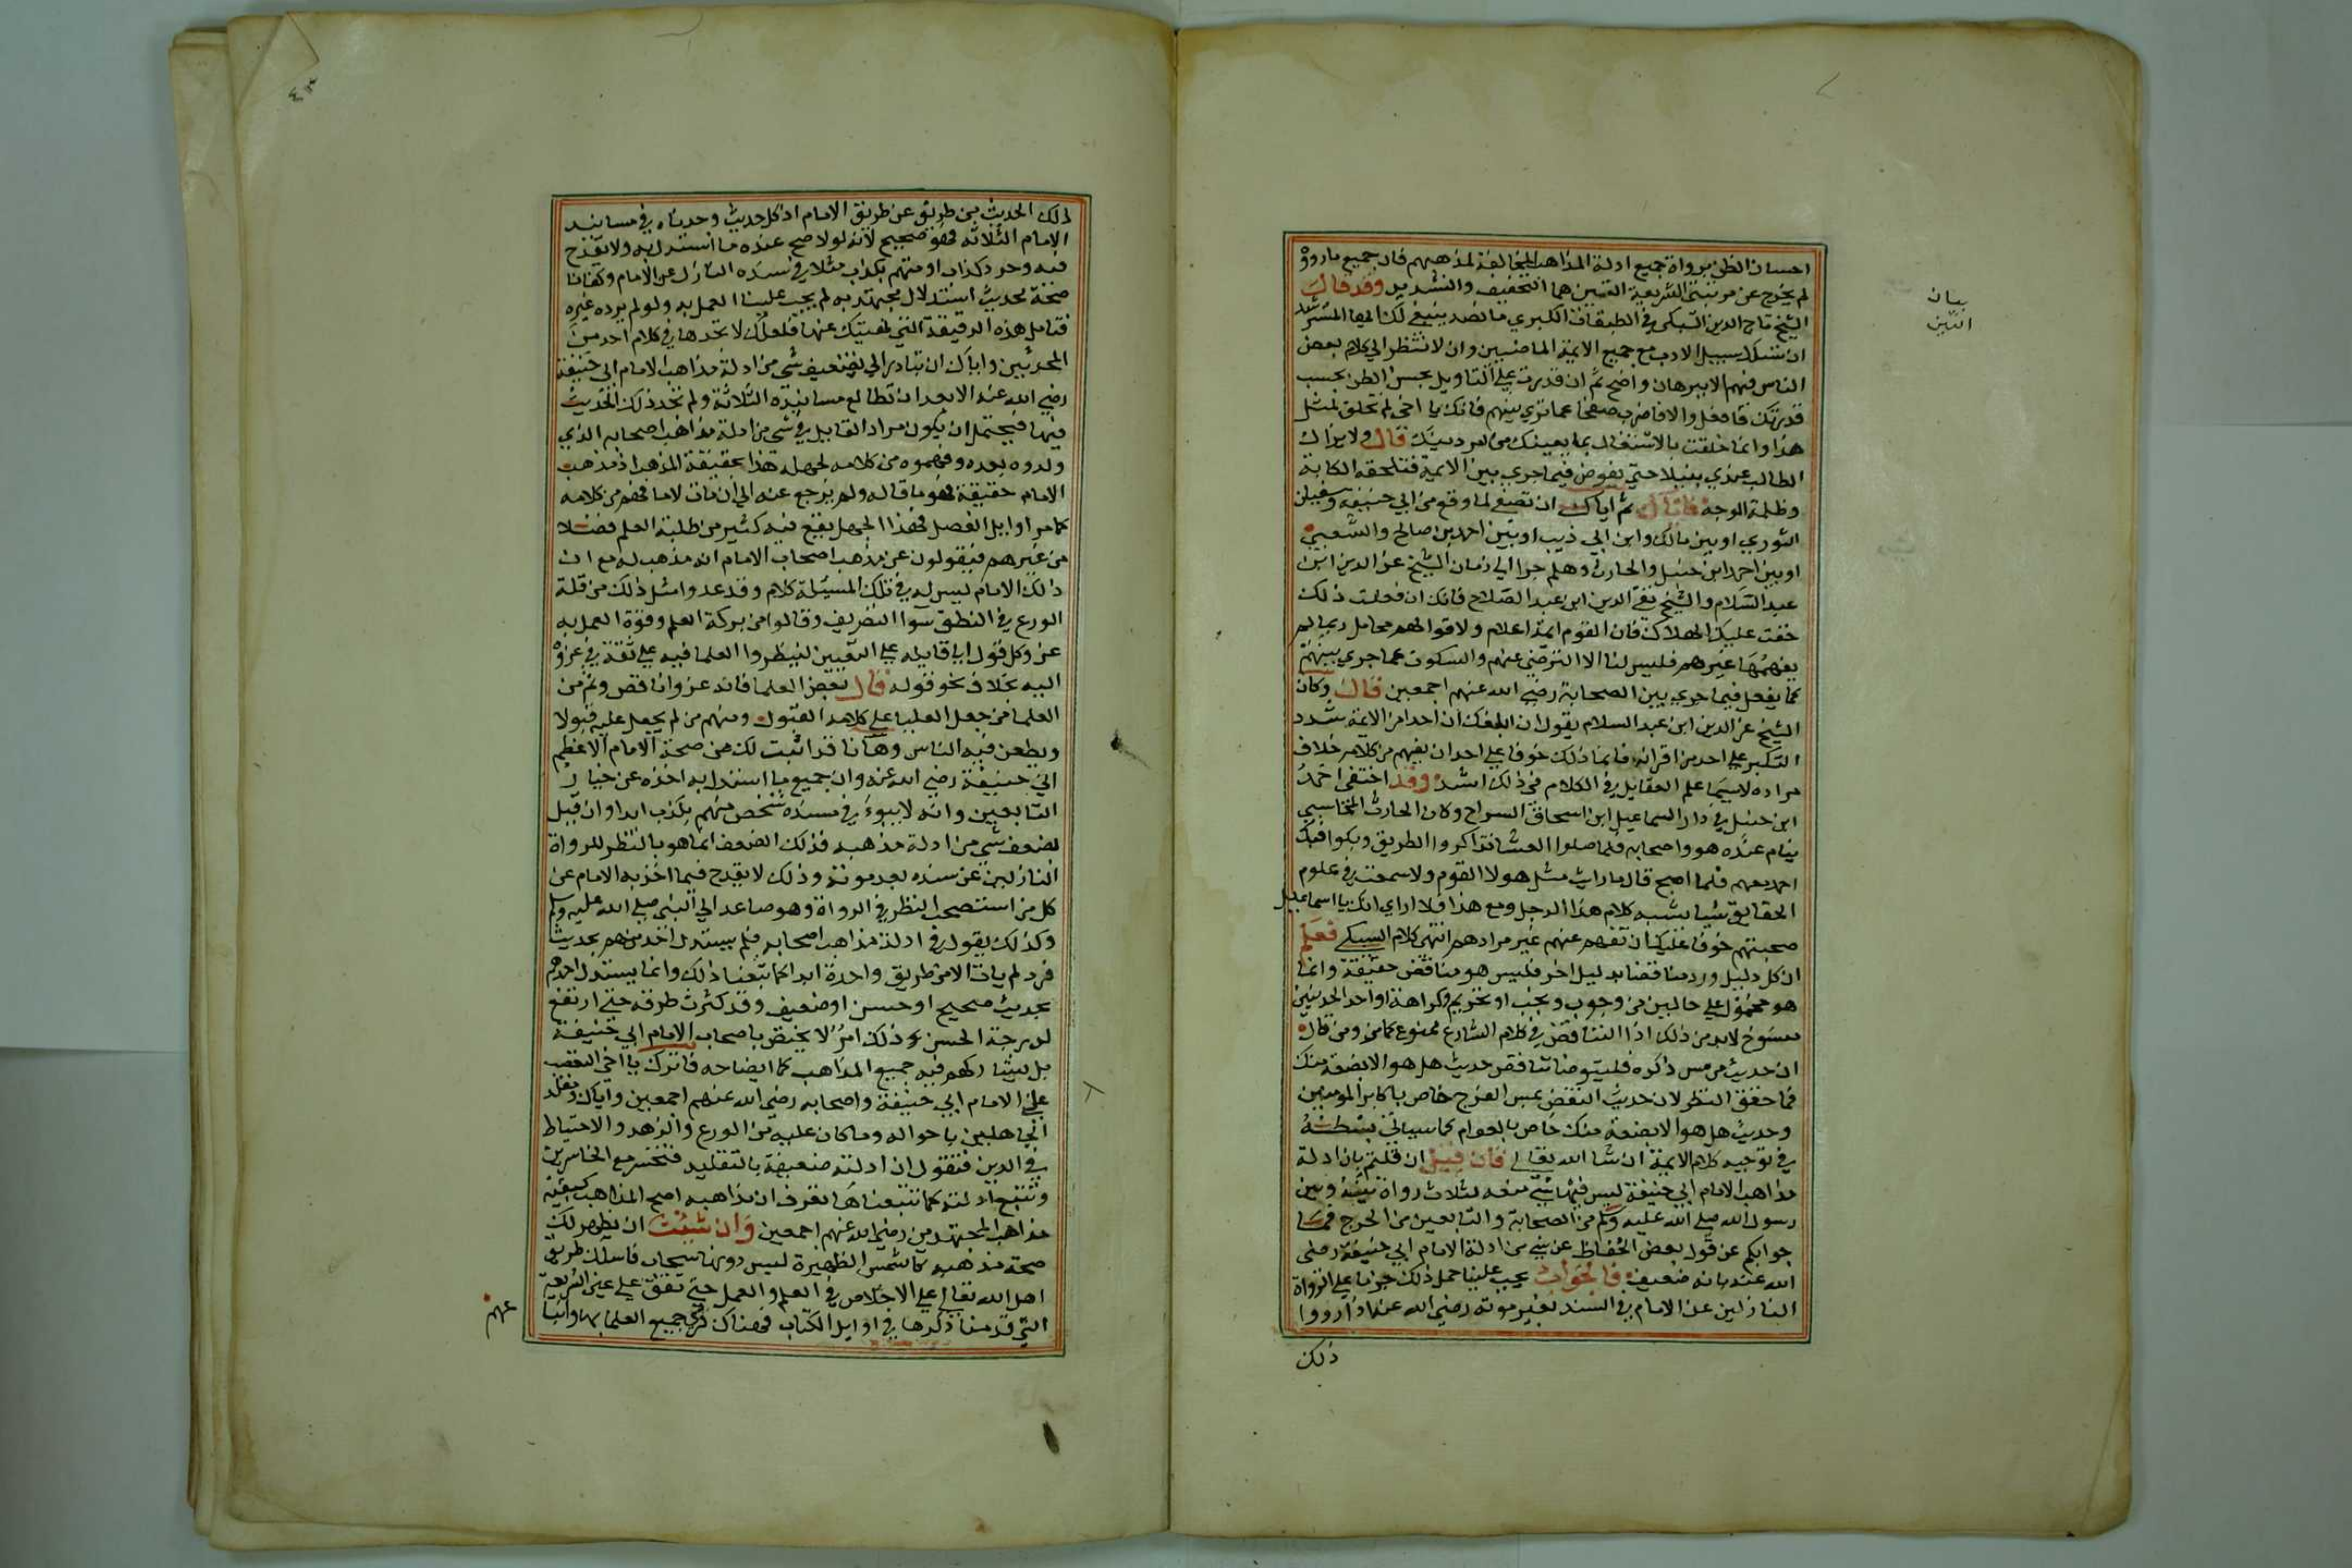 احسان الظن برواة جميع ادلة المذاهب المخالفة لمذهبهم فان جميع ما رووه
لم يخرج عن مرتبتي الشريعة اللتين هما التخفيف والتشديد وقد قال
الشيخ تاج الدين السبكي في الطبقات الكبري ما نصه ينبغي لك ايها المسترشد
ان تسلك سبيل الادب مع جميع الايمة الماضيين وان لا تنظر الي كلام بعض
الناس فيهم الا ببرهان واضح ثم ان قدرت علي التاويل بحسن الظن بحسب
قدرتك فافعل والا فاضرب صفحا عما تري بينهم فانك يا اخي لم تخلق لمثل
هذا وانما خلقت بالاشتغال بما يعينك من امر دينك قال ولا يزال
الطالب عندي بنبلا حتي يخوض فيما جري بين الايمة فتلحقه الكابة
وظلمة الوجه فاياك ثم اياك ان تصغي لما وقع من ابي حنيفة وسفيان
الثوري او بين مالك وابن ابي ذيب او بين احمد بن صالح والشعبي
او بين احمد ابن حنبل والحارث وهلم جرا الي زمان الشيخ عز الدين ابن
عبد السلام والشيخ تقي الدين ابن عبد الصلاح فانك ان فعلت ذلك
خفت عليك الهلاك فان القوم ايمة اعلام ولاقوالهم محامل ربما لم
يفهمها غيرهم فليس لنا الا الترضي عنهم والسكوت عما جري بينهم
كما يفعل فيما جري بين الصحابة رضي الله عنهم اجمعين قال وكان
الشيخ عز الدين ابن عبد السلام يقول ان ابلغك ان احدا من الايمة شدد
التكبر علي احد من اقرانه فانما ذلك خوفا علي احد ان يفهم من كلامه خلاف
مراده لاسيما علم العقايل في الكلام في ذلك اشد وقد اختفي احمد
ابن حنبل في دار السماعيل ابن اسحاق السراح وكان الحارث المحاسبي
ينام عنده هو واصحابه فلما صلوا العشا تذاكروا الطريق وبكوا فبكي
احمد معهم فلما اصبح قال ما رايت مثل هولا القوم ولا سمعت في علوم
الحقايق شيا يشبه كلام هذا الرجل ومع هذا فلا اراي لك يا اسماعيل
صحبتهم خوفا عليك ان تفهم عنهم غير مرادهم انتهي كلام السبكي فعلم
ان كل دليل ورد مناقضا بدليل اخر فليس هو مناقض حقيقة وانما
هو محمول علي حالين من وجوب وبحب او تحريم وكراهة او احد الحديثين
منسوخ لابد من ذلك اذا التناقض في كلام الشارع ممنوع كما مر ومن قال
ان حديث من مس ذكره فليتوضا تناقض حديث هل هو الا بضعة منك
فما حقق النظر لان حديث النقض بمس الفرج خاص باكابر المومنين
وحديث هل هو الا بضعة منك خاص بالعوام كما سياتي بسطه
في توجيه كلام الايمة ان شا الله تعالي فان قيل ان قلتم بان ادلة
مذاهب الامام ابي حنيفة ليس فيها شي ضعف لثلاث رواة بينه وبين
رسول الله صلي الله عليه وسلم من الصحابة والتابعين من الجرح فما
جوابكم عن قول بعض الحفاظ عن شي من ادلة الامام ابي حنيفة رضي
الله عنه بانه ضعيف فالجواب يجب علينا حمل ذلك جزما علي الرواة
النازلين عن الامام في السند بغير موته رضي الله عنه اذا رووا
ذلك
بيان
التين
ذلك الحديث من طريق عن طريق الامام اذ كل حديث وجدناه في مسانيد
الامام الثلاثة فهو صحيح لانه لولا صح عنده ما استدل به ولا يقدح
فيه وجود كذاب او متهم بكذب مثلا في سنده النازل عن الامام وكفانا
صحة بحديث استدلال مجتهد به لم يجب علينا العمل به ولو لم يرده غيره
فتامل هذه الدقيقة التي نبهتك عنها فلعلك لا تجدها في كلام احد من
المحدثين واياك ان تبادر الي تضعيف شي من ادلة مذاهب الامام ابي حنيفة
رضي الله عنه الا بعد ان تطالع مسانيده الثلاثة ولم تجد ذلك الحديث
فيها فيحتمل ان يكون مراد القايل في شي من ادلة مذاهب اصحابه الذي
ولدوه بعده وفهموه من كلامه لجهله هذا بحقيقة المذهب اذ مذهب
الامام حقيقة فهو ما قاله ولم يرجع عنه الي ان مات لا ما فهم من كلامه
كما مر اوايل الفصل فهذا الجهل يقع فيه كثير من طلبة العلم فضلا
من غيرهم فيقولون عن مذهب اصحاب الامام انه مذهب له مع ان
ذلك الامام ليس له في تلك المسيلة كلام وقد عدوا مثل ذلك من قلة
الورع في النطق سوا التضريف وقالوا من بركة العلم وقوة العمل به
عزو كل قول الي قايله علي التعيين لينظروا العلما فيه علي ثقة في عزوه
اليه بخلاف نحو قوله قال بعض العلما فانه عزو ناقص وثم من
العلما من جعل العلما علي كلامه القبول ومنهم من لم يجعل عليه قبولا
ويطعن فيه الناس وها انا قد اثبت لك من صحة الامام الاعظم
ابي حنيفة رضي الله عنه وان جميع ما استدل به اخذه عن خيار
التابعين وانه لا يبوء في مسنده شخص متهم بكذب ابدا وان قيل
بضعف شي من ادلة مذهبه فذلك الضعف انما هو بالنظر للرواة
النازلين عن سنده بعد موته وذلك لا يقدح فيما اخذ به الامام عن
كل من استصحب النظر في الرواة وهو صاعد الي النبي صلي الله عليه وسلم
وكذلك يقول في ادلة مذاهب اصحابه فلم يستدل احد منهم بحديث
فرد لم يات الا من طريق واحدة ابدا كما تتبعنا ذلك وانما يستدل احدهم
بحديث صحيح او حسن او ضعيف وقد كثرت طرقه حتي ارتفع
لدرجة الحسن وذلك امر لا يختص باصحاب الامام ابي حنيفة
بل يشاركهم فيه جميع المذاهب كما ايضاحه فاترك يا اخي التعصب
علي الامام ابي حنيفة واصحابه رضي الله عنهم اجمعين واياك وتقلد
الجاهلين باحواله وما كان عليه من الورع والزهد والاحتياط
في الدين فتقول ان ادلته ضعيفة بالتقليد فتخسر مع الخاسرين
وتتبع ادلته كما تتبعناها تعرف ان مذاهبه اصح المذاهب كبقية
مذاهب المجتهدين رضي الله عنهم اجمعين وان شيت ان يظهر لك
صحة مذهبه كالشمس الظهيرة ليس دونها سحاب فاسلك طريق
اهل الله تعالي علي الاخلاص في العلم والعمل حتي تقف علي عين الشريعة
التي قدمنا ذكرها في اوايل الكتاب فهناك تري جميع العلما بها واتبا
عهم